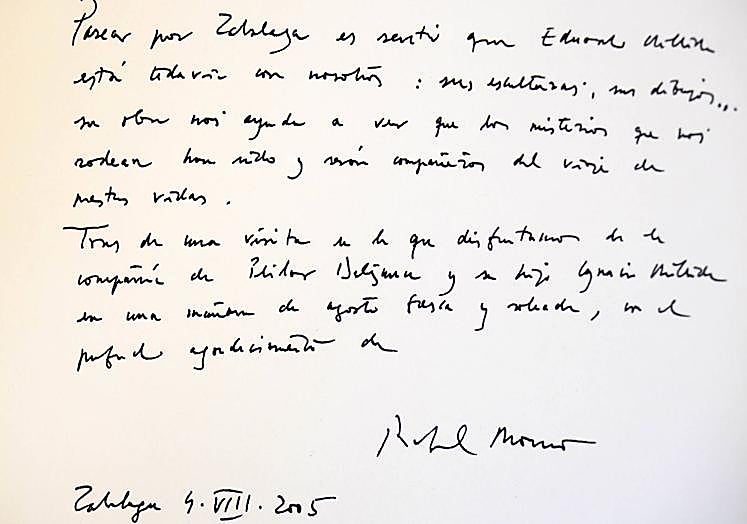 Pasear por Zabalaga es sentir que Eduardo Chillida
está todavía con nosotros : sus esculturas, sus dibujos...
su obra nos ayuda a ver que los misterios que nos
rodean han sido y serán compañeros del viaje de
nuestras vidas .
Tras de una visita en la que disfrutamos de la
compañía de Pilar Belzunce y su hijo Ignacio Chillida
en una mañana de agosto fresca y soleada, con el
profundo agradecimiento de
Rafael Moneo
Zabalaga 4. VIII. 2005